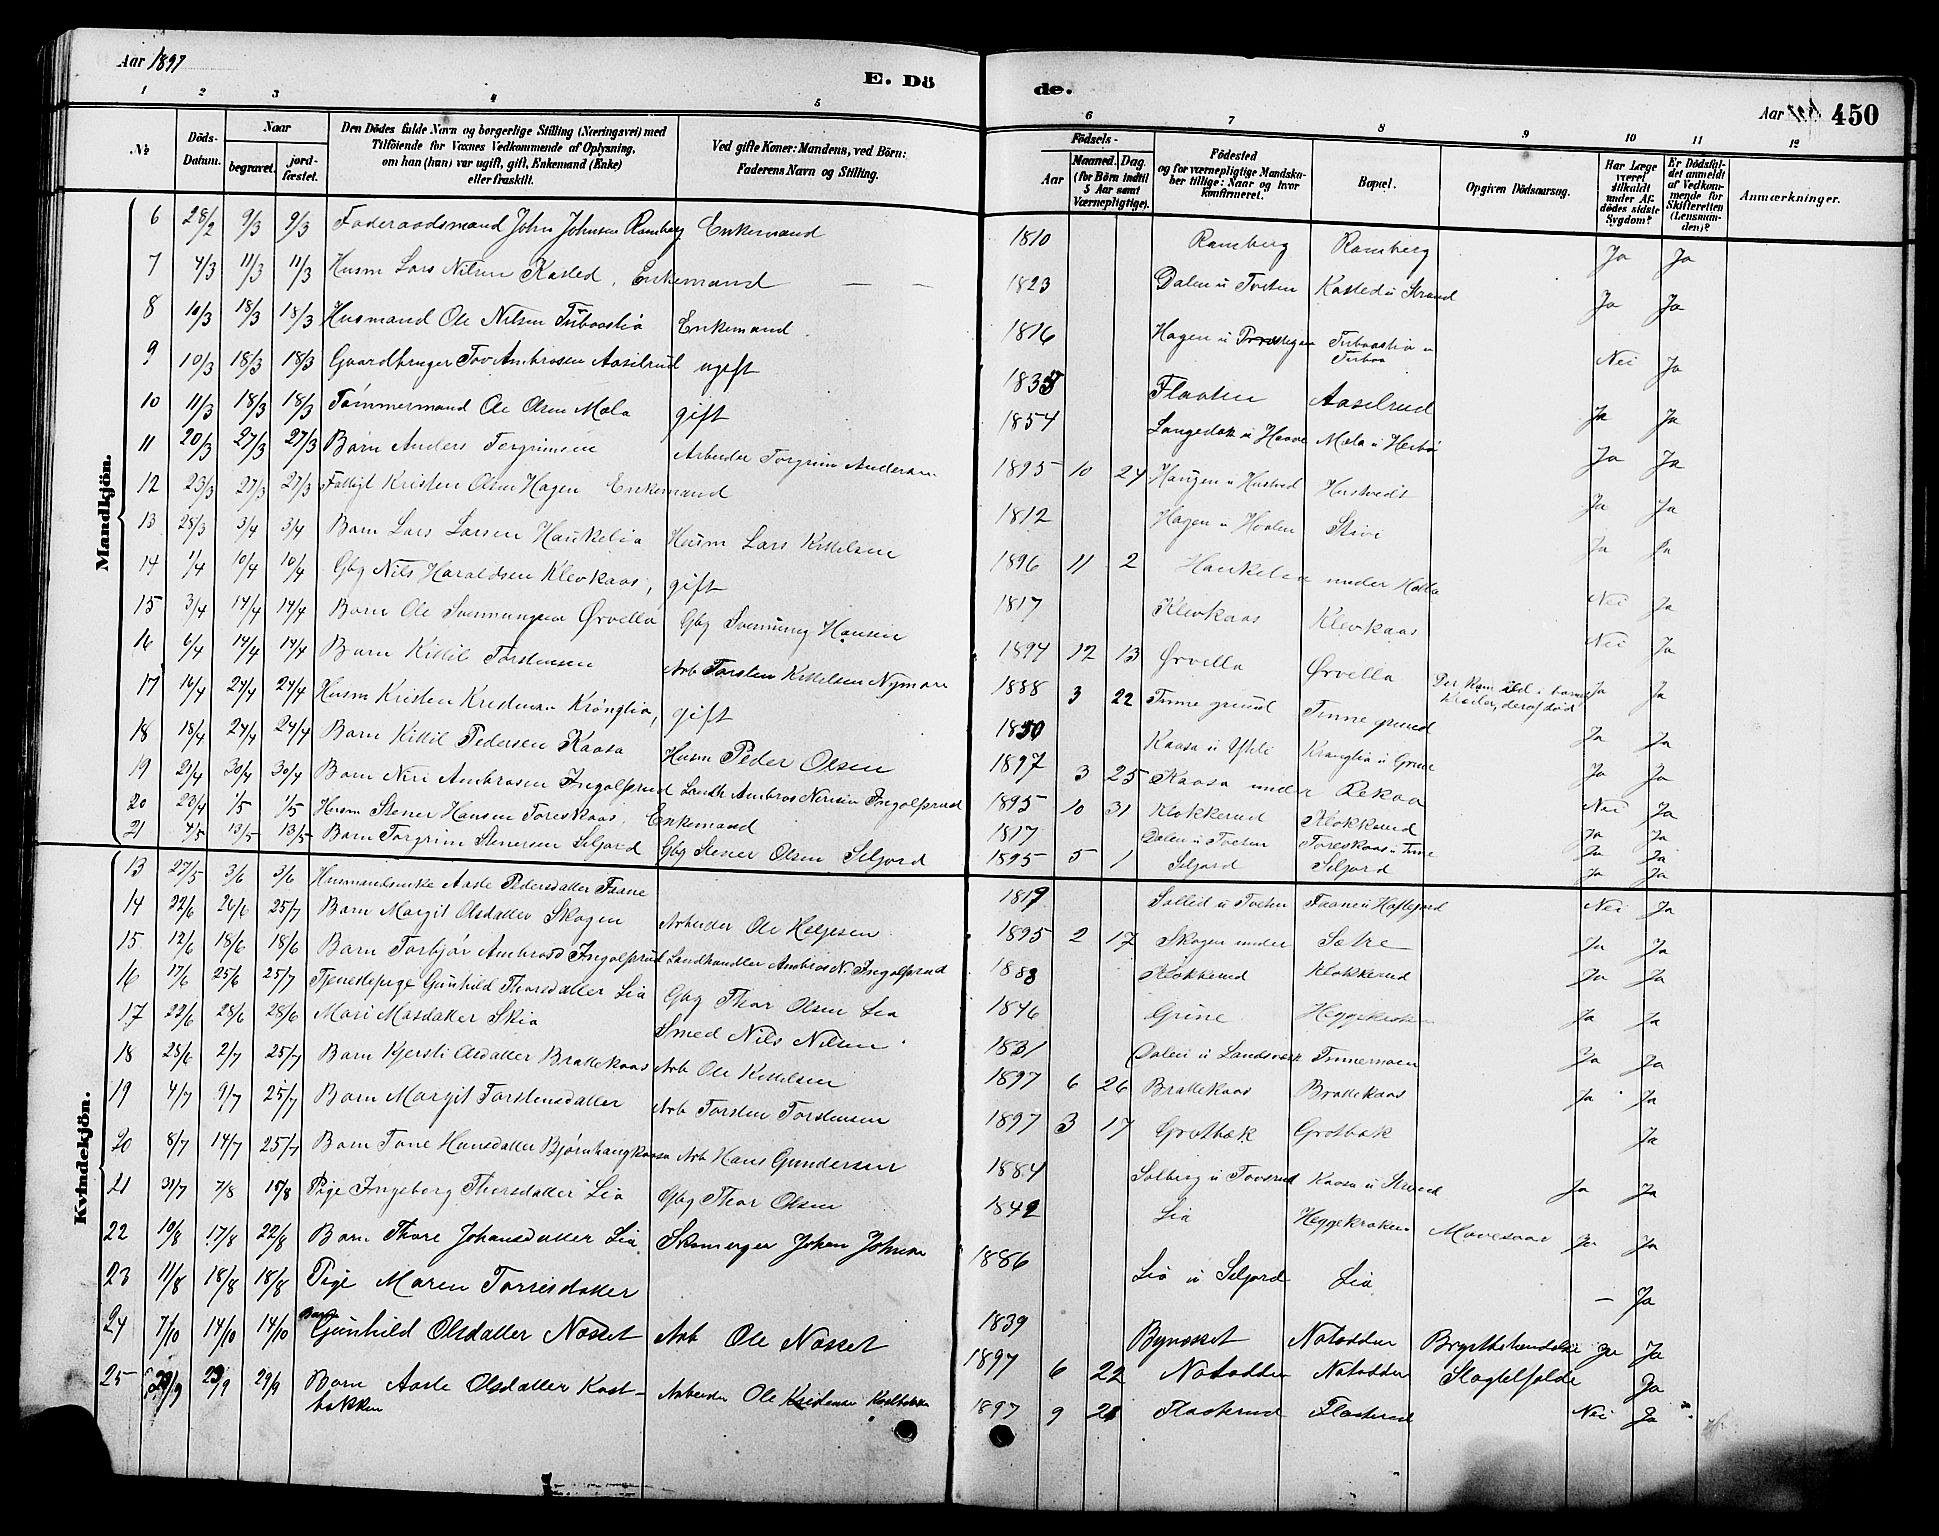 Aar 1897
E. Dö
de.
Aar
450
1 2 3 4 5 6 7 8 9 10 11 12
№
Döds-Datum.
Naar
begravet.
jord-fæstet.
Den Dödes fulde Navn og borgerlige Stilling (Næringsvei) med Tilföiende for Voxnes Vedkommende af Oplysning, om han (hun) var ugift, gift, Enkemand (Enke) eller fraskilt.
Ved gifte Koner: Mandens, ved Börn: Faderens Navn og Stilling.
Födsels-
Aar
Maaned. Dag.
(for Börn indtil 5 Aar samt Værnepligtige).
Födested og for værnepligtige Mandskaber tillige: Naar og hvor konfirmeret.
Bopæl.
Opgiven Dödsaarsag.
Har Læge været tilkaldt under Afdödes sidste Sygdom?
Er Dödsfaldet anmeldt af Vedkommende for Skifteretten (Lensmanden)?
Anmærkninger.
Mandkjön.
6 28/2 9/3 9/3 Föderaadsmand John Johnsen Ramberg Enkemand 1810 Ramberg Ramberg Ja Ja
7 4/3 11/3 11/3 Husm Lars Nilsen Kasted, Enkemand — — 1823 Dalen u Tveten Kasted u Strand Ja Ja
8 10/3 18/3 18/3 Husmand Ole Nilsen Enkemand. 1816 Hagen u Nei Ja
9 10/3 18/3 18/3 Gaardbruger Tov Ambrosen Aaselrud ugift Flaaten Aaselrud Ja Ja
10 11/3 18/3 18/3 Tømmermand Ole Olsen Mæla gift 1854 Langedok u Mæla u Ja Ja
11 20/3 27/3 27/3 Barn Anders Tergrimsen Arbeider Torgrim Andersen 1895 10 24 Haugen u Hustved Hustvedt Ja Ja
12 23/3 27/3 27/3 Fattigl Kristen Olsen Hagen Enkemand 1812 Hagen u Ja Ja
13 28/3 3/4 3/4 Barn Lars Larsen Haukelia Husm Lars Kittelsen 1896 11 2 Haukelia under Nei Ja
14 1/4 10/4 10/4 Gbg Nils Haraldsen Klevkaas, gift 1817 Klevkaas Klevkaas Nei Ja
15 3/4 14/4 14/4 Barn Ole Svenningsen Ørvella Gbg Svenning Hansen 1894 12 13 Ørvella Ørvella Ja Ja
16 6/4 14/4 14/4 Barn Kittil Torstensen Arb Torsten Kittelsen Nymoen 1888 3 22 Tinne grund Tinne grund Ja Ja
17 16/4 24/4 24/4 Husm Kristen Kristensen gift Kaasa u Ja Ja
18 18/4 24/4 24/4 Barn Kittil Pedersen Kaasa Husm Peder Olsen 1897 3 25 Kaasa under Rekaa Nei Ja
19 21/4 30/4 30/4 Barn Niri Ambrosen Ingolfsrud Landh Ambros Nirisen Ingolfsrud 1895 10 31 Klokkerud Klokkerud Ja Ja
20 23/4 1/5 1/5 Husm Stener Hansen Toreskaas. Enkemand 1817 Dalen u Tveten Toreskaas u Tinne Ja Ja
21 4/5 13/5 13/5 Barn Torgrim Stenersen Seljord Gbg Stener Olsen Seljord 1895 5 1 Seljord Seljord Ja Ja
Kvindekjön.
13 27/5 3/6 3/6 Husmandsenke Aaste Pedersdatter 1819 u Tveten Nei Ja
14 22/6 26/6 25/7 Barn Margit Olsdatter Skogen Arbeider Ole Helgesen 1895 2 17 Skogen under Sætre Ja Ja
15 12/6 18/6 18/6 Barn Torbjør Ambrosd Ingolfsrud Landhandler Ambros N. Ingolfsrud 1888 Klokkerud Klokkerud Ja Ja
16 17/6 25/6 25/7 Tjenestepige Gunhild Thorsdatter Lia Gbg Thor Olsen Lia 1846 Grine Heggekroken Ja Ja
17 22/6 28/6 28/6 Mari Skia Smed Nils Nilsen 1831 Dalen u Tinnemoen Ja Ja
18 28/6 2/7 25/7 Barn Kjersti Olsdatter Brattekaas Arb Ole Kittelsen 1897 6 26 Brattekaas Brattekaas Ja Ja
19 4/7 9/7 25/7 Barn Margit Torstensdatter Arb Torsten Torstensen 1897 3 17 Grotbæk Grotbæk Ja
20 8/7 14/7 25/7 Barn Tone Hansdatter Bjørnhaugkaasa Arb Hans Gundersen 1884 Solberg u Kaasa u Strand Ja Ja
21 31/7 7/8 15/8 Pige Ingeborg Thorsdatter Lia Gbg Thor Olsen 1842 Lia Heggekroken Mavesaar Ja Ja
22 10/8 17/8 22/8 Barn Thore Johansdatter Lia. Skomager Johan Johnsen 1886 Lia u Seljord Lia — Ja
23 11/8 18/8 18/8 Pige Maren Torresdatter 1839 Bynesset Notodden Ja Ja
24 7/10 14/10 14/10 Barn Gunhild Olsdatter Næsset Arb Ole Næsset 1897 6 22 Notodden Notodden Ja
25 29/9 29/9 Barn Aaste Olsdatter Kast-
bakken Arbeider Ole Kristensen 1897 9 21 Flaaterud Flaaterud Nei Ja